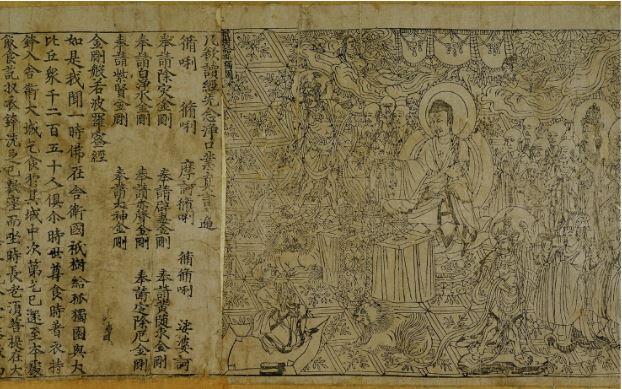 凡欲讀經先念淨口業真言一遍
脩唎 脩唎 摩訶脩唎 脩脩唎 娑婆訶
奉請除灾金剛 奉請辟毒金剛 奉請黄隨求金剛
奉請白淨水金剛 奉請赤聲金剛 奉請定除厄金剛
奉請紫賢金剛 奉請大神金剛
金剛般若波羅蜜經
如是我聞一時佛在舍衛國祇樹給孤獨園與大
比丘衆千二百五十人俱尒時世尊食時著衣持
鉢入舍衛大城乞食於其城中次第乞已還至本處
飯食訖收衣鉢洗足已敷座而坐時長老須菩提在大